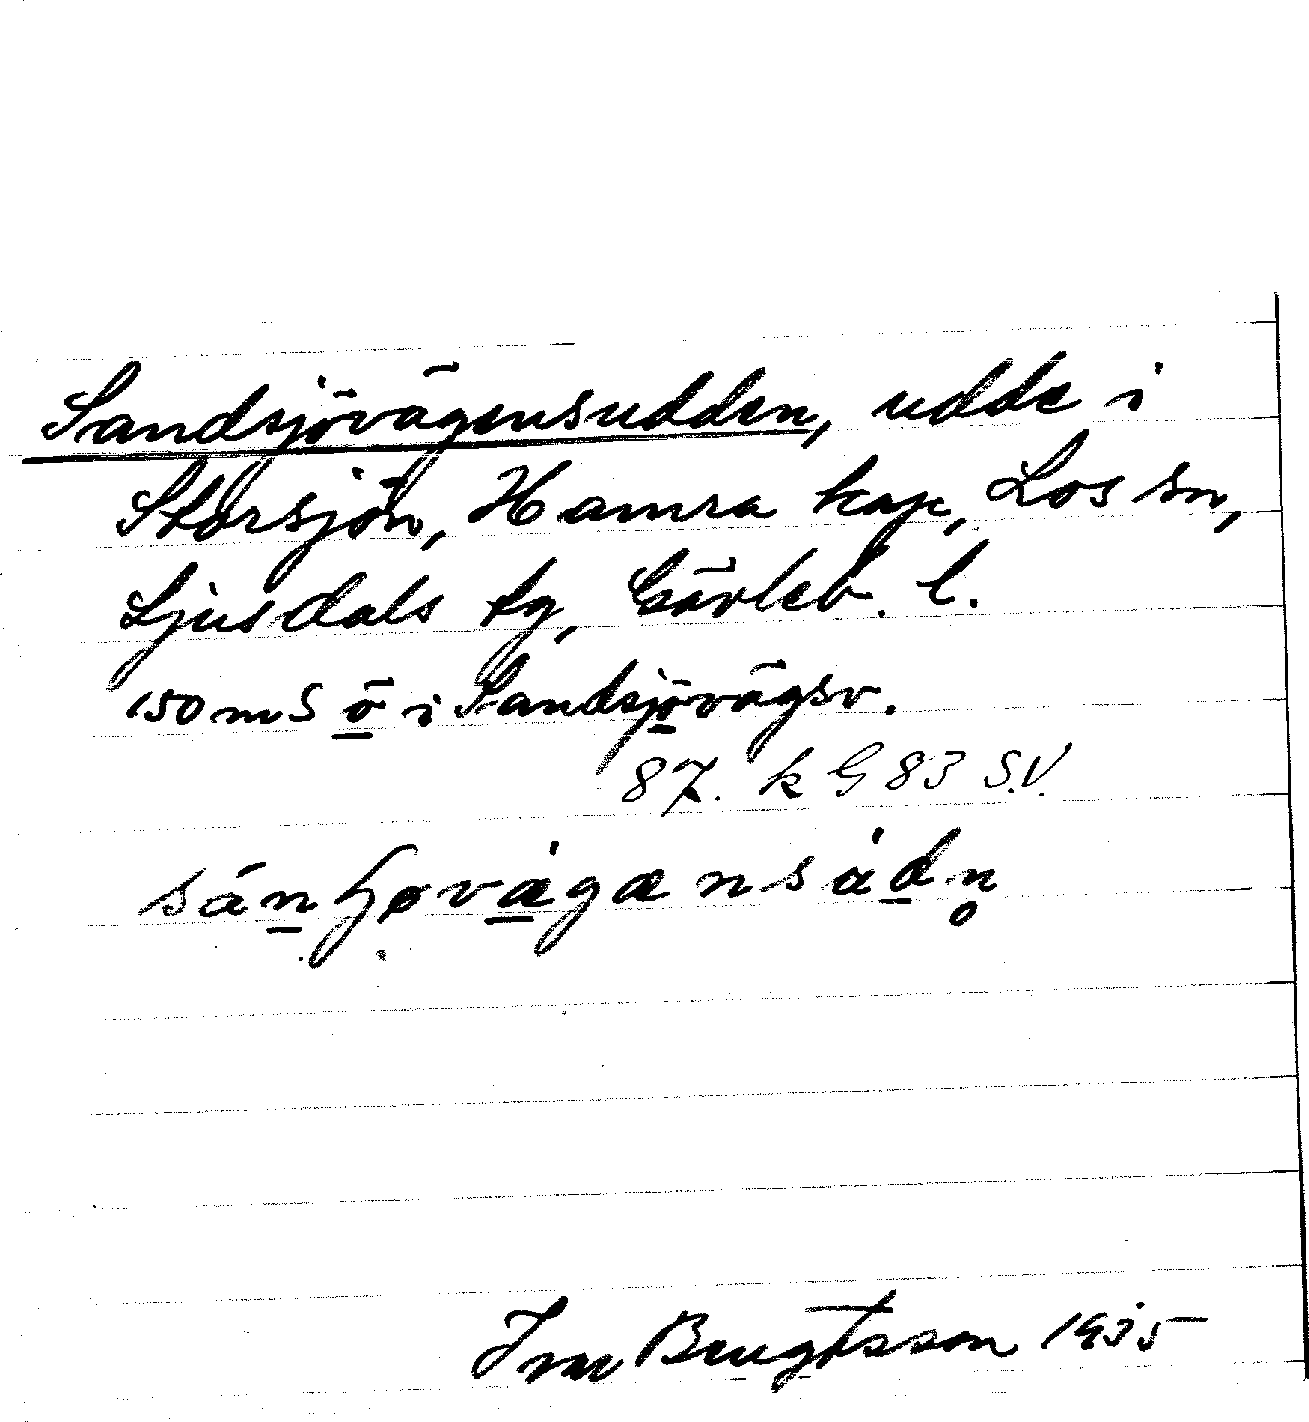 Sandsjövägensudden, udde i
Storsjön, Hamra kap, Los sn,
Ljusdals tg, Gävleb. l.
150 m S ö i Sandsjövägsv.
87. k G 83 S.V.
Bengtsson 1935